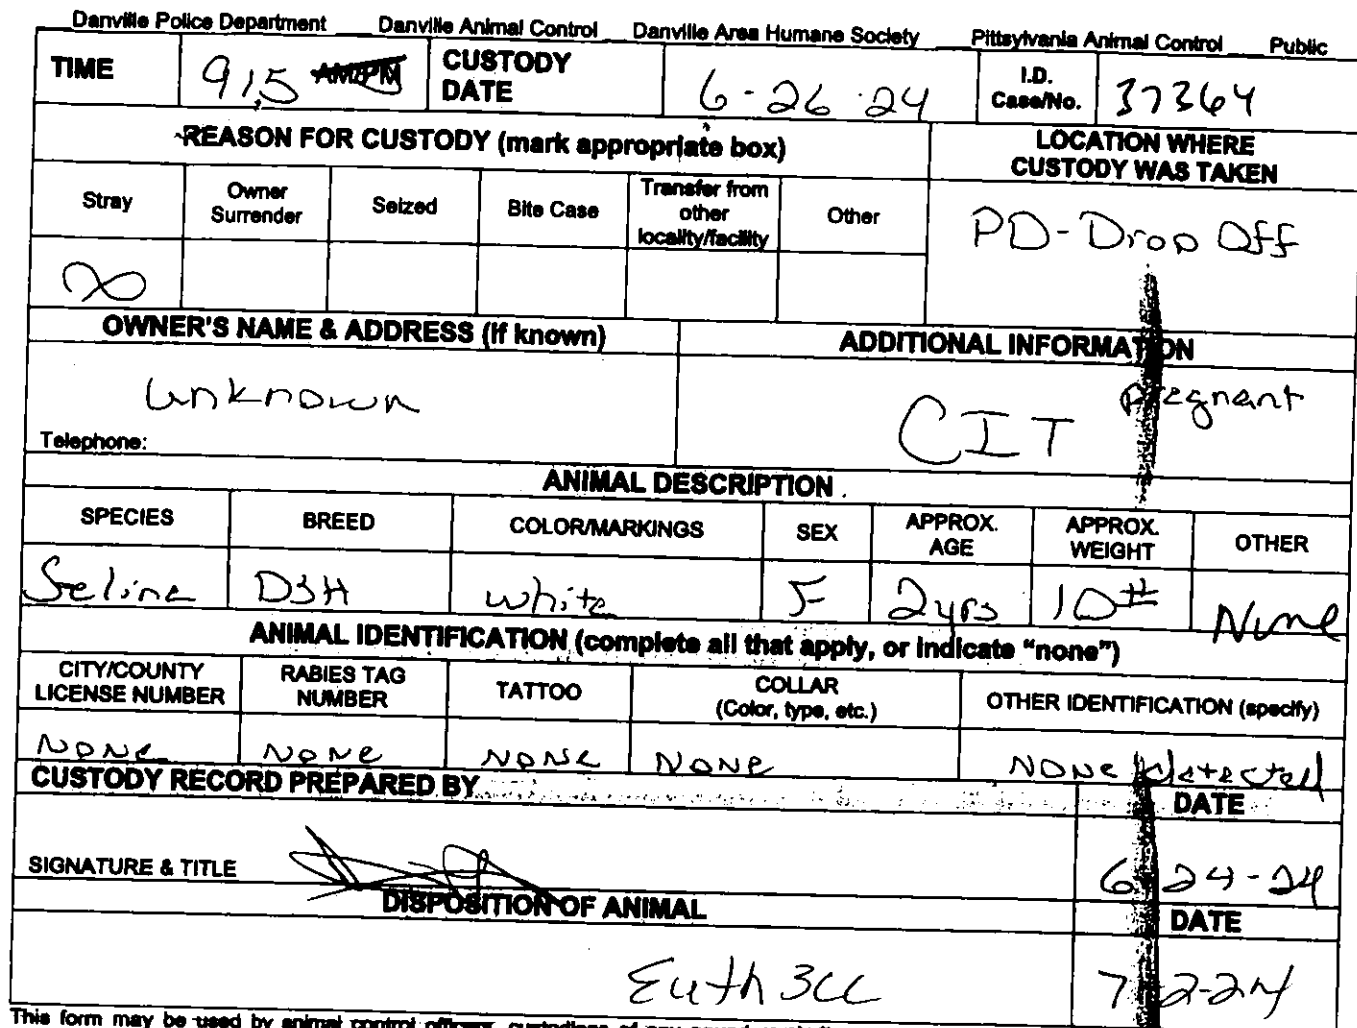 Danville Police Department ___ Danville Animal Control ___ Danville Area Humane Society ___ Pittsylvania Animal Control ___ Public
TIME 915 AM/PM CUSTODY DATE 6-26-24 I.D. Case/No. 37364
REASON FOR CUSTODY (mark appropriate box) LOCATION WHERE CUSTODY WAS TAKEN
Stray Owner Surrender Seized Bite Case Transfer from other locality/facility Other
PD-Drop Off
OWNER'S NAME & ADDRESS (if known) ADDITIONAL INFORMATION
unknown CIT pregnant
Telephone:
ANIMAL DESCRIPTION
SPECIES BREED COLOR/MARKINGS SEX APPROX. AGE APPROX. WEIGHT OTHER
Feline DSH white F 2yrs 10# None
ANIMAL IDENTIFICATION (complete all that apply, or indicate "none")
CITY/COUNTY LICENSE NUMBER RABIES TAG NUMBER TATTOO COLLAR (Color, type, etc.) OTHER IDENTIFICATION (specify)
None None None None None detected
CUSTODY RECORD PREPARED BY DATE
SIGNATURE & TITLE 6-24-24
DISPOSITION OF ANIMAL DATE
Euth 3cc 7-2-24
This form may be used by animal control officers, custodians of any pound